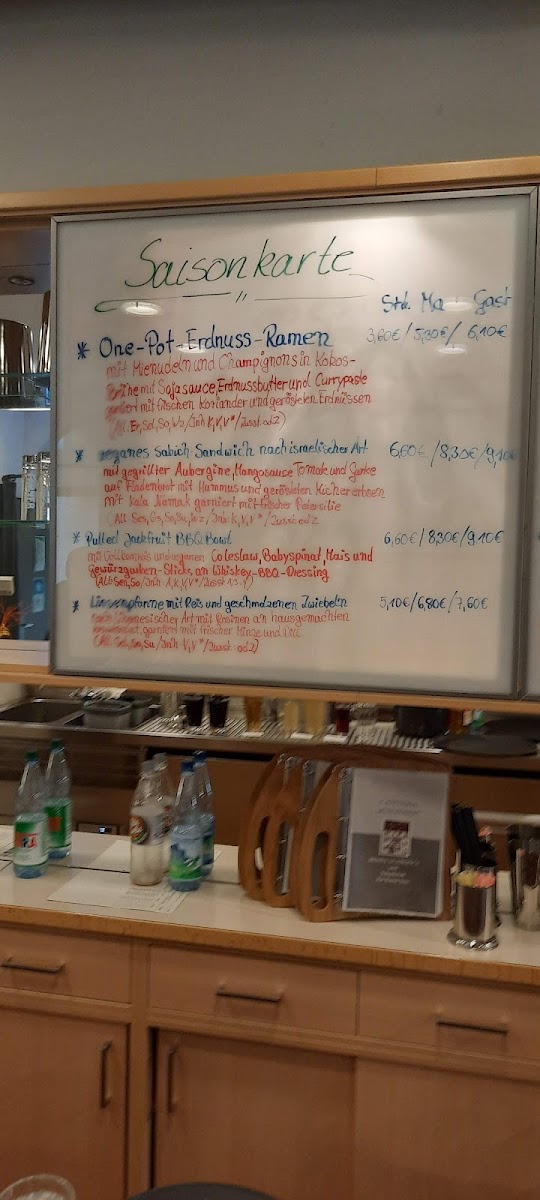 Saisonkarte
Std. Ma Gast
* One-Pot-Erdnuss-Ramen 3,60€/5,30€/6,10€
mit Mienudeln und Champignons in Kokos-
brühe mit Sojasauce, Erdnussbutter und Currypaste
garniert mit frischen Koriander und gerösteten Erdnüssen
(All. Er, Sel, So, Wz/Inh K,V,V*/Zusst. od 2)
* veganes Sabich-Sandwich nach israelischer Art 6,60€/8,30€/9,10€
mit gegrillter Aubergine, Mangosauce Tomate und Gurke
auf Fladenbrot mit Hummus und gerösteten Kichererbsen
mit Kala Namak garniert mit frischer Petersilie
* Pulled Jackfruit BBQ Bowl 6,60€/8,30€/9,10€
mit veganem Coleslaw, Babyspinat, Mais und
Gewürzgurken-Sticks, an Whiskey-BBQ-Dressing
* Linsenpfanne mit Reis und geschmolzenen Zwiebeln 5,10€/6,80€/7,60€
nach Art mit Rosinen an hausgemachten
garniert mit frischer Minze und